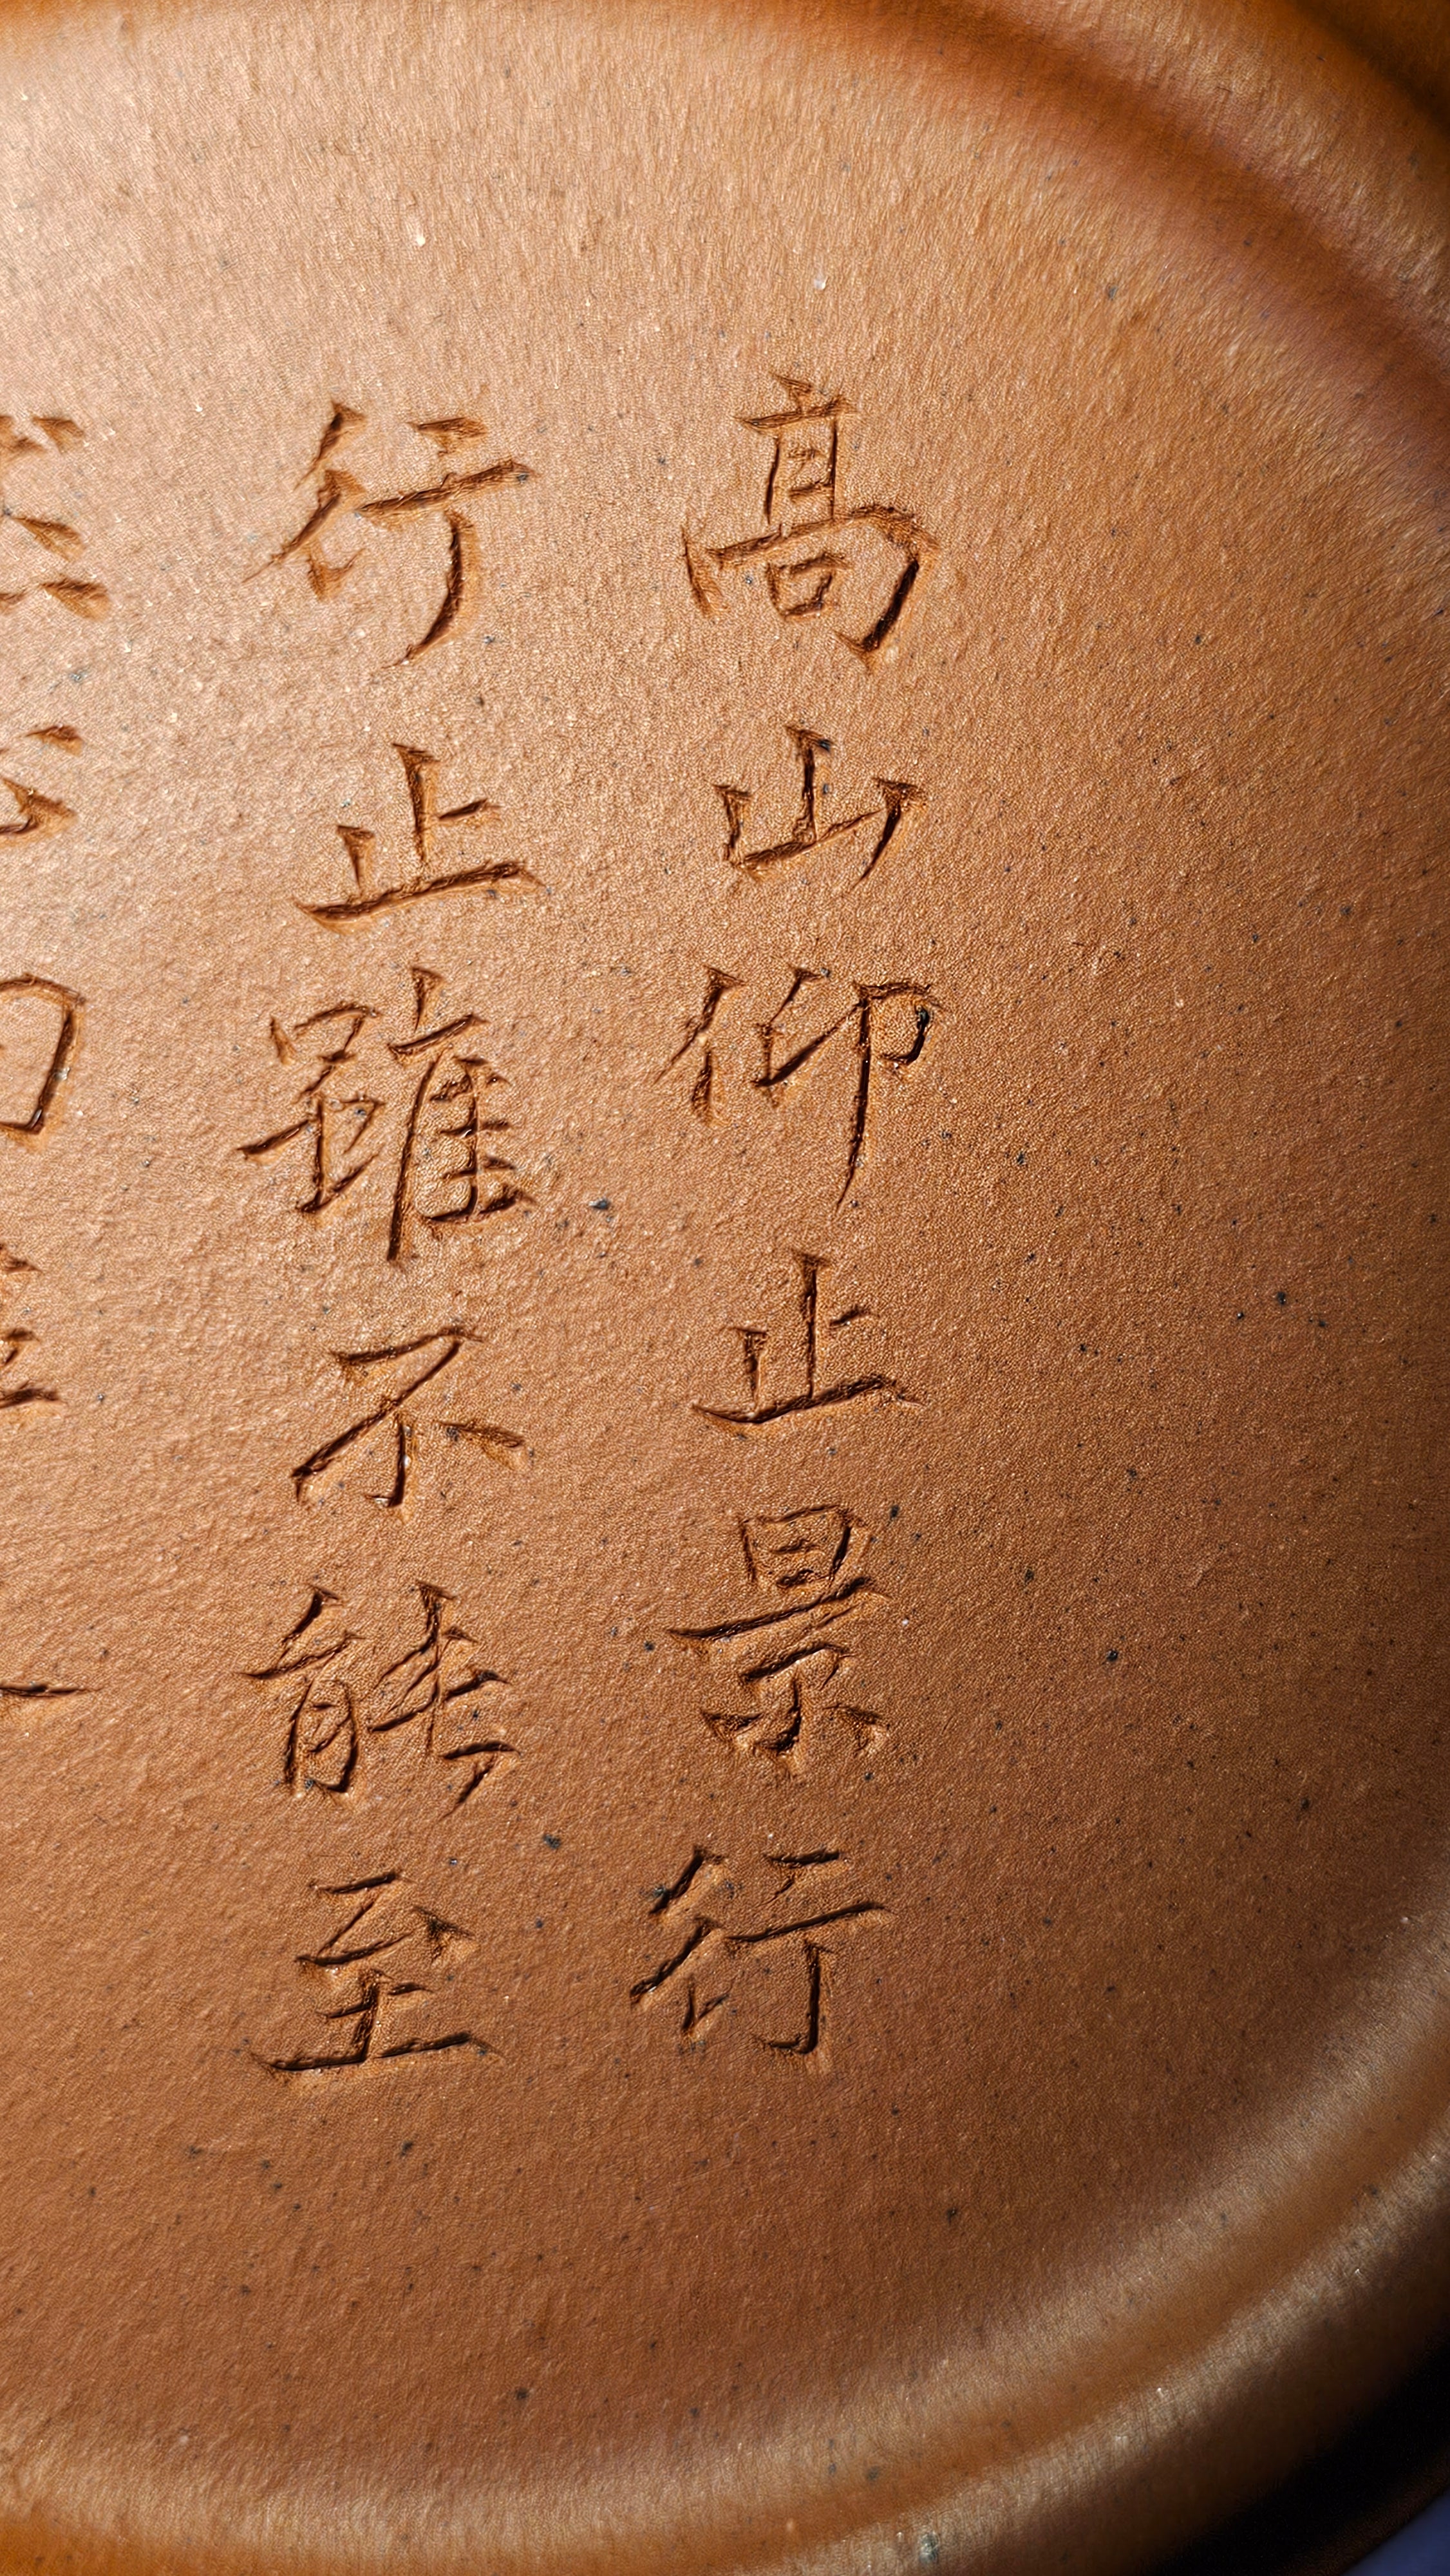 高山仰止景行
行止雖不能至